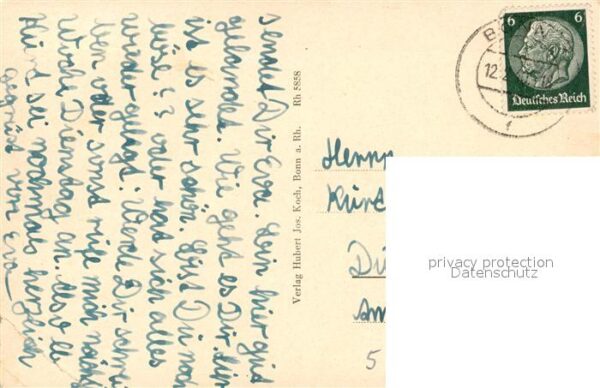 sendet Dir Eva. Bin hier gut
gelandet. Wie geht es Dir, hier
ist es sehr schön. Bist Du noch
böse oder hat sich alles
wieder gelegt? Werde Dir schrei
ben oder sonst rufe mir näch
Woche Dienstag an. Also es
Kurt sei nochmals herzlich
gegrüßt von Eva
Verlag Hubert Jos. Koch, Bonn a. Rh. Rh 5858
6 6
Deutsches Reich
12.
Herrn
Kurt
Dü
Am
5
privacy protection
Datenschutz